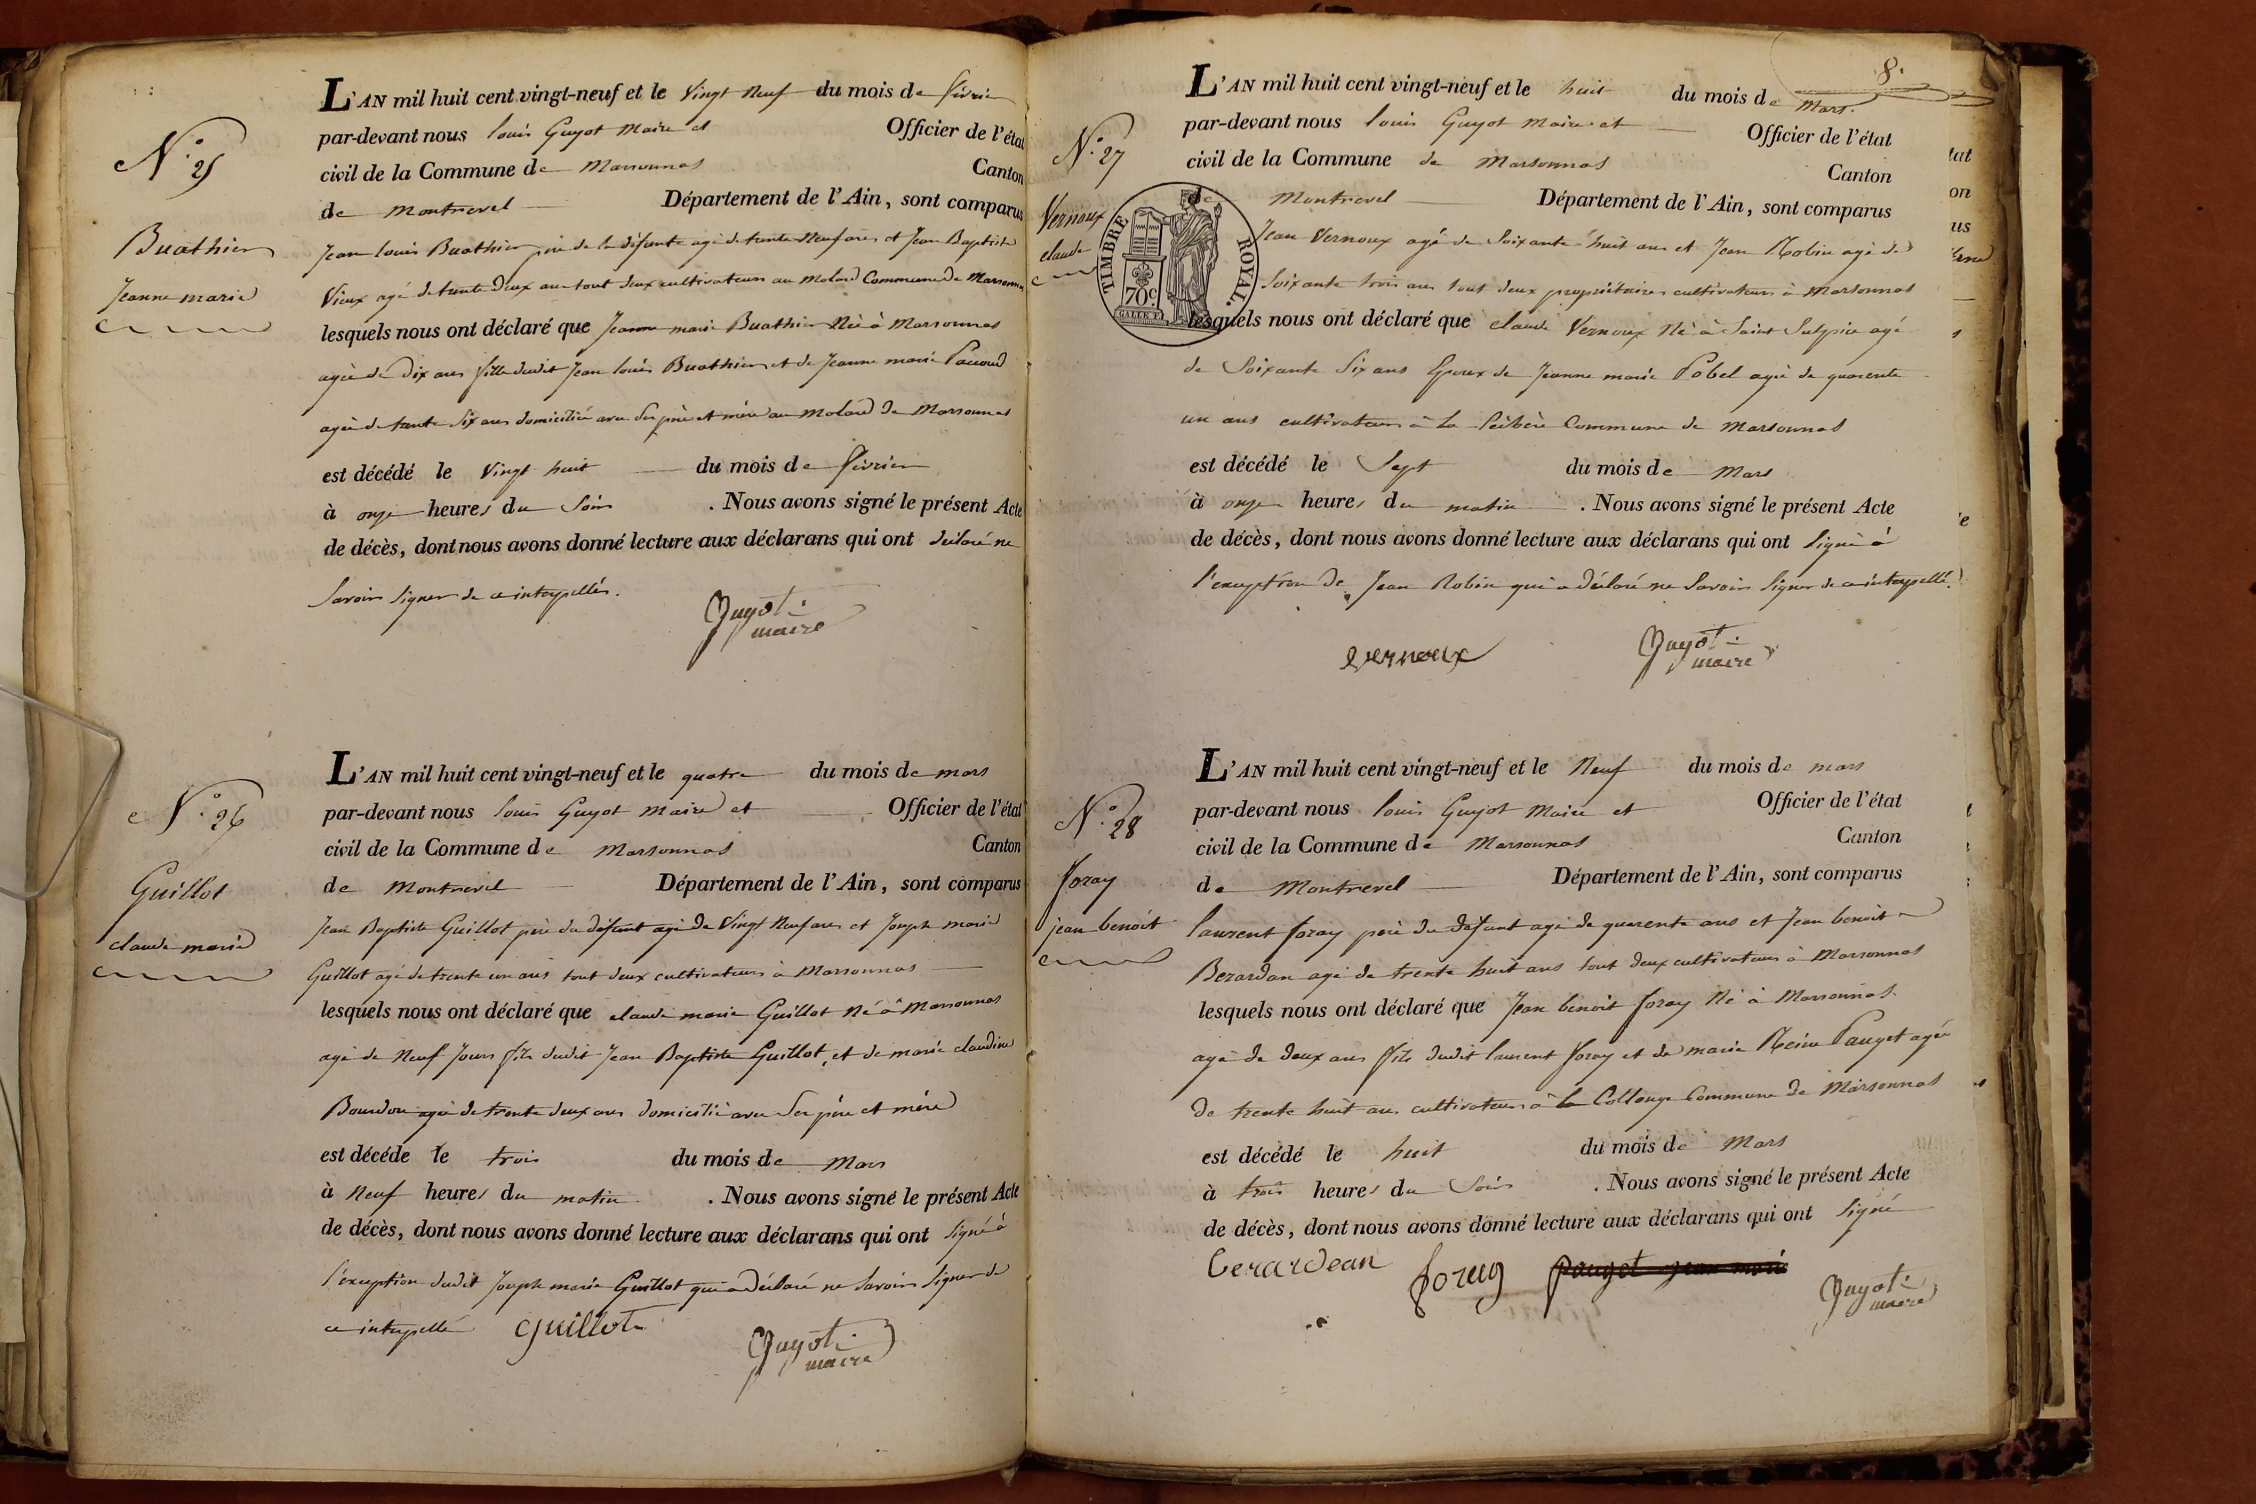 N.° 25
Buathier
Jeanne marie
L'AN mil huit cent vingt-neuf et le vingt neuf du mois de février
par-devant nous louis Guyot Maire et Officier de l'état
civil de la Commune de Marsonnas Canton
de Montrevel Département de l'Ain, sont comparus
Jean louis Buathier père de la défunte agé de trente neuf ans et Jean Baptiste
Vieux agé de trente deux ans tout deux cultivateurs au Molard Commune de Marsonnas
lesquels nous ont déclaré que Jeanne marie Buathier Née à Marsonnas
agée de Dix ans fille dudit Jean louis Buathier et de Jeanne marie Pacoud
agée de trente six ans domiciliée avec ses père et mère au Molard de Marsonnas
est décédé le vingt huit du mois de février
à onze heures du Soir . Nous avons signé le présent Acte
de décès, dont nous avons donné lecture aux déclarans qui ont déclaré ne
Savoir Signer de ce interpellés.
Guyot
maire
N.° 26
Guillot
claude marie
L'AN mil huit cent vingt-neuf et le quatre du mois de mars
par-devant nous louis Guyot Maire et Officier de l'état
civil de la Commune de Marsonnas Canton
de Montrevel Département de l'Ain, sont comparus
Jean Baptiste Guillot père du défunt agé de Vingt Neuf ans et Joseph marie
Guillot agé de trente un ans tout deux cultivateurs à Marsonnas
lesquels nous ont déclaré que claude marie Guillot Né à Marsonnas
agé de Neuf Jours fils dudit Jean Baptiste Guillot et de marie claudine
Bourdon agée de trente deux ans domicilié avec Ses père et mère
est décéde le trois du mois de Mars
à Neuf heures du matin . Nous avons signé le présent Acte
de décès, dont nous avons donné lecture aux déclarans qui ont Signé à
l'exception dudit Joseph marie Guillot qui a déclaré ne Savoir Signer de
ce interpellé guillot
Guyot
maire
8.
N.° 27
Vernoux
claude
TIMBRE ROYAL.
70c
L'AN mil huit cent vingt-neuf et le huit du mois de Mars.
par-devant nous louis Guyot Maire et Officier de l'état
civil de la Commune de Marsonnas Canton
de Montrevel Département de l'Ain, sont comparus
Jean Vernoux agé de Soixante huit ans et Jean Robin agé de
Soixante trois ans tout deux propriétaires cultivateurs à Marsonnas
lesquels nous ont déclaré que claude Vernoux Né à Saint Sulpice agé
de Soixante Six ans Epoux de Jeanne marie Pobel agée de quarente
un ans cultivateurs à la Commune de Marsonnas
est décédé le Sept du mois de Mars
à onze heures du matin . Nous avons signé le présent Acte
de décès, dont nous avons donné lecture aux déclarans qui ont Signé à
l'exception de Jean Robin qui a déclaré ne Savoir Signer de ce interpellé.
vernoux
Guyot
maire
N.° 28
foray
jean benoit
L'AN mil huit cent vingt-neuf et le Neuf du mois de mars
par-devant nous louis Guyot Maire et Officier de l'état
civil de la Commune de Marsonnas Canton
de Montrevel Département de l'Ain, sont comparus
laurent foray père du défunt agé de quarente ans et Jean benoit
Berardan agé de trente huit ans tout deux cultivateurs à Marsonnas
lesquels nous ont déclaré que Jean benoit foray Né à Marsonnas
agé de deux ans fils dudit laurent foray et de marie Reine Pauget agée
de trente huit ans cultivateurs à la Collonge Commune de Marsonnas
est décédé le huit du mois de Mars
à trois heures du Soir . Nous avons signé le présent Acte
de décès, dont nous avons donné lecture aux déclarans qui ont Signé
Berardean foray pauget jean marie
Guyot
maire